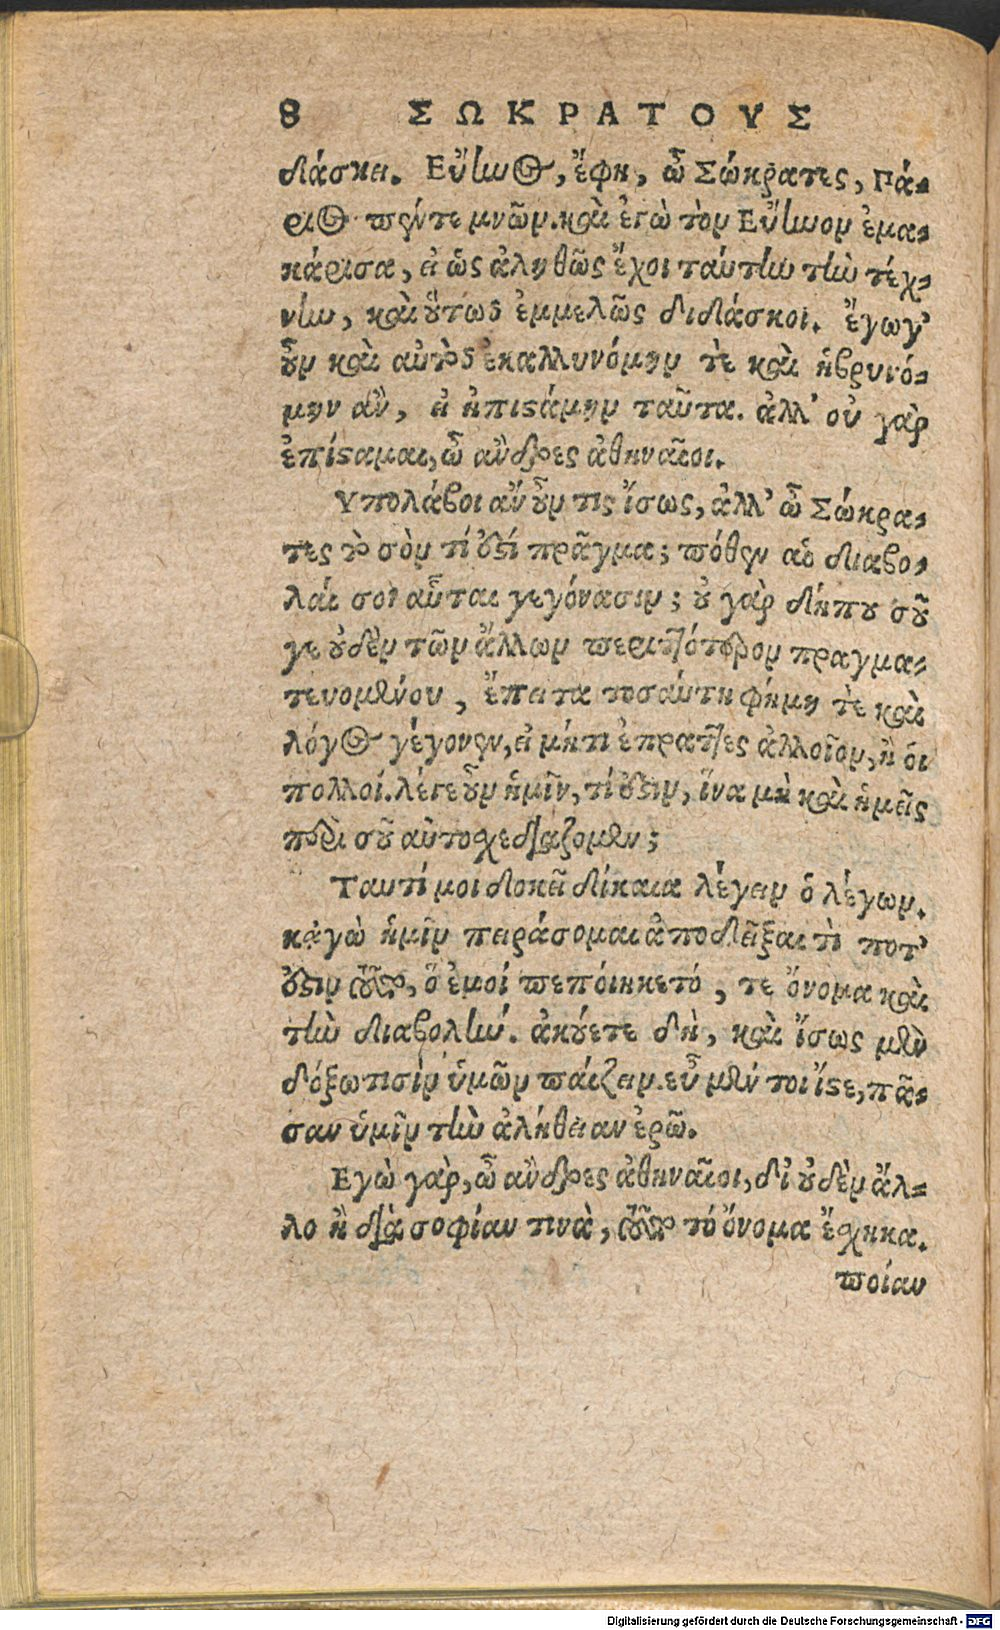 8 ΣΩΚΡΑΤΟΥΣ
δάσκει. Εὔηνος, ἔφη, ὦ Σώκρατες, Πά-
ριος πέντε μνῶν. καὶ ἐγὼ τὸν Εὔηνον ἐμα-
κάρισα, εἰ ὡς ἀληθῶς ἔχοι ταύτην τὴν τέχ-
νην, καὶ οὕτως ἐμμελῶς διδάσκοι. ἔγωγ'
οὖν καὶ αὐτὸς ἐκαλλυνόμην τὲ καὶ ἡβρυνό-
μην ἂν, εἰ ἠπιστάμην ταῦτα. ἀλλ' οὐ γὰρ
ἐπίσταμαι, ὦ ἄνδρες ἀθηναῖοι.
Υπολάβοι ἄν οὖν τις ἴσως, ἀλλ' ὦ Σώκρα-
τες τὸ σὸν τί ἐστί πρᾶγμα; πόθεν αἱ διαβο-
λαί σοι αὗται γεγόνασιν; οὐ γὰρ δήπου σοῦ
γε οὐδὲν τῶν ἄλλων περιττότερον πραγμα-
τευομένου, ἔπειτα τοσάυτη φήμη τὲ καὶ
λόγος γέγονεν, εἰ μήτι ἐπραττες ἀλλοῖον, ἢ οἱ
πολλοί. λέγε οὖν ἡμῖν, τί ἐστιν, ἵνα μὴ καὶ ἡμεῖς
περὶ σοῦ αὐτοχεδιαζομεν;
Ταυτί μοι δοκεῖ δίκαια λέγειν ὁ λέγων.
κἀγὼ ἡμῖν πειράσομαι ἀποδεῖξαι τὶ ποτ'
ἐστιν τοῦτο, ὅ ἐμοί πεπόιηκετό, τε ὄνομα καὶ
τὴν διαβολήν. ἀκούετε δὴ, καὶ ἴσως μὲν
δόξω τισίν ὑμῶν πάιζειν. εὖ μέν τοι ἴστε, πᾶ-
σαν ὑμῖν τὴν ἀλήθειαν ἐρῶ.
Εγὼ γὰρ, ὦ ἄνδρες ἀθηναῖοι, δἰ οὐδὲν ἄλ-
λο ἢ διὰ σοφίαν τινὰ, τοῦτο τό ὄνομα ἔσχηκα.
ποίαν
Digitalisierung gefördert durch die Deutsche Forschungsgemeinschaft - DFG